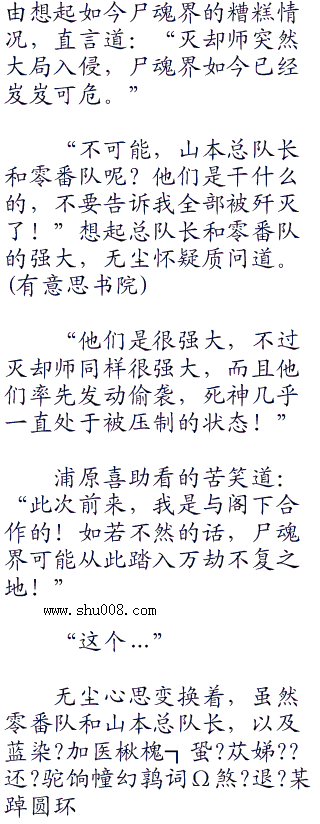 由想起如今尸魂界的糟糕情
况，直言道：“灭却师突然
大局入侵，尸魂界如今已经
岌岌可危。”
“不可能，山本总队长
和零番队呢？他们是干什么
的，不要告诉我全部被歼灭
了！”想起总队长和零番队
的强大，无尘怀疑质问道。
(有意思书院)
“他们是很强大，不过
灭却师同样很强大，而且他
们率先发动偷袭，死神几乎
一直处于被压制的状态！”
浦原喜助看的苦笑道：
“此次前来，我是与阁下合
作的！如若不然的话，尸魂
界可能从此踏入万劫不复之
地！”
www.shu008.com
“这个…”
无尘心思变换着，虽然
零番队和山本总队长，以及
蓝染?加医楸槐┓蛩?苡娣??
还?驼饷幢幻鹑词Ω煞?退?某
踔圆环